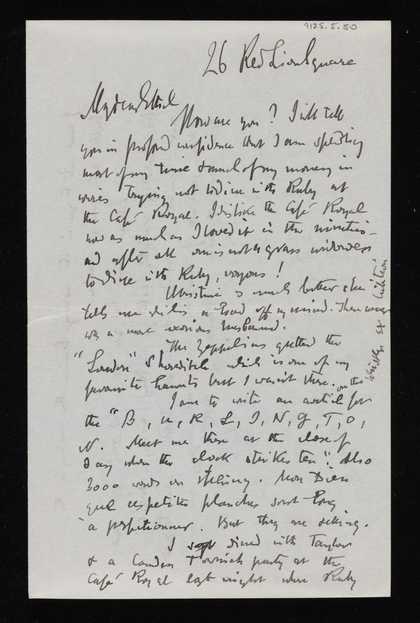 9125.5.50
26 Red Lion Square
My dear Ethel
How are you? I will tell
you in profound confidence that I am spending
most of my time & much of my money in
trying not to dine with Ruby at
the Café Royal. I dislike the Café Royal
now as much as I loved it in the nineties
and after all one is not a grass widower
to dine with Ruby, voyons!
Christine is much better she
tells me & this is a load off my mind. There never
was a more anxious husband.
The Zeppelins gutted the
"London" Shoreditch which is one of my
favourite haunts but I wasn't there.
I am to write an article for
the "B, U, R, L, I, N, G, T, O,
N. Meet me there at the close of
day when the clock strikes ten". Also
3000 words on etching. Mon Dieu
que ces petites planches sont
à perfectionner. But they are selling.
I dined with Taylor
& a Camden Town party at the
Café Royal last night when Ruby